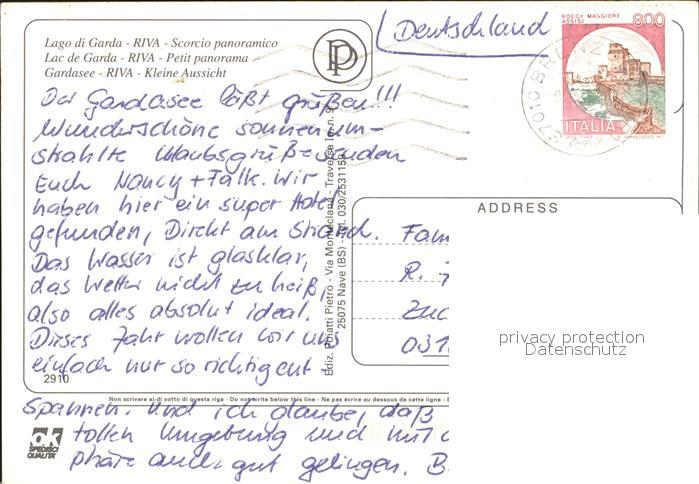 Lago di Garda - RIVA - Scorcio panoramico
Lac de Garda - RIVA - Petit panorama
Gardasee - RIVA - Kleine Aussicht
PP
Deutschland
ROCCA MAGGIORE
ASSISI
800
ITALIA
37010
Der Gardasee läßt grüßen!!!
Wunderschöne sonnenum-
strahlte Urlaubsgrüße senden
Euch Nancy + Falk. Wir
haben hier ein super Hotel
gefunden, Direkt am Strand.
Das Wasser ist glasklar,
das Wetter nicht zu heiß,
also alles absolut ideal.
Dieses Jahr wollen wir uns
einfach nur so richtig ent-
spannen. Und ich glaube, daß
tollen Umgebung und mit
phäre auch gut gelingen. B
Ediz. Poiatti Pietro - Via Monteclana - Traversa I n. 9
25075 Nave (BS) - Tel. 030/2531159
ADDRESS
Fam
R.
031
privacy protection
Datenschutz
2910
Non scrivere al di sotto di questa riga - Do not write below this line - Ne pas écrire au dessous de cette ligne -
ak
SPEDISCI
QUALITA'